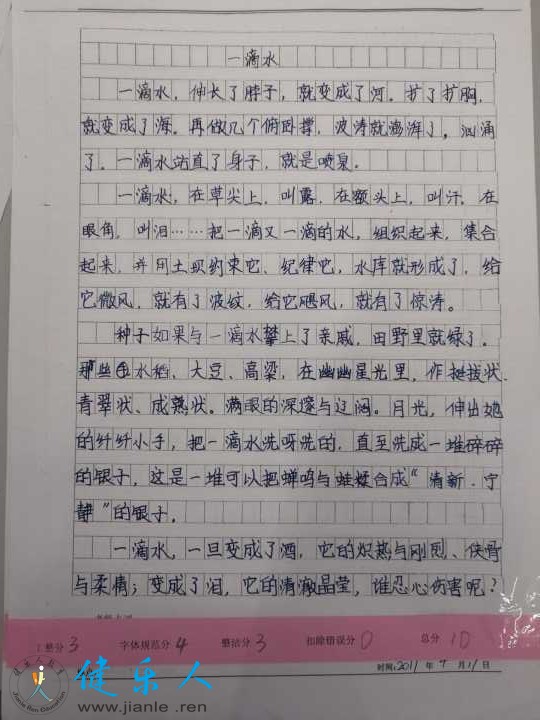 一滴水
一滴水，伸长了脖子，就变成了河。扩了扩胸，
就变成了海。再做几个俯卧撑，波涛就澎湃了，汹涌
了。一滴水站直了身子，就是喷泉。
一滴水，在草尖上，叫露，在额头上，叫汗，在
眼角，叫泪……把一滴又一滴的水，组织起来，集合
起来，并用土坝约束它、纪律它，水库就形成了，给
它微风，就有了波纹，给它飓风，就有了惊涛。
种子如果与一滴水攀上了亲戚，田野里就绿了。
那些水稻、大豆、高梁，在幽幽星光里，作挺拔状、
青翠状、成熟状。满眼的深邃与辽阔。月光，伸出她
的纤纤小手，把一滴水洗呀洗的，直至洗成一堆碎碎
的银子，这是一堆可以把蝉鸣与蛙揉合成“清新·宁
静”的银子。
一滴水，一旦变成了酒，它的炽热与刚烈、侠骨
与柔情；变成了泪，它的清澈晶莹，谁忍心伤害呢？
工整分 3 字体规范分 4 整洁分 3 扣除错误分 0 总分 10
时间：2011 年 7 月 11 日
健乐人
www.jianle.ren